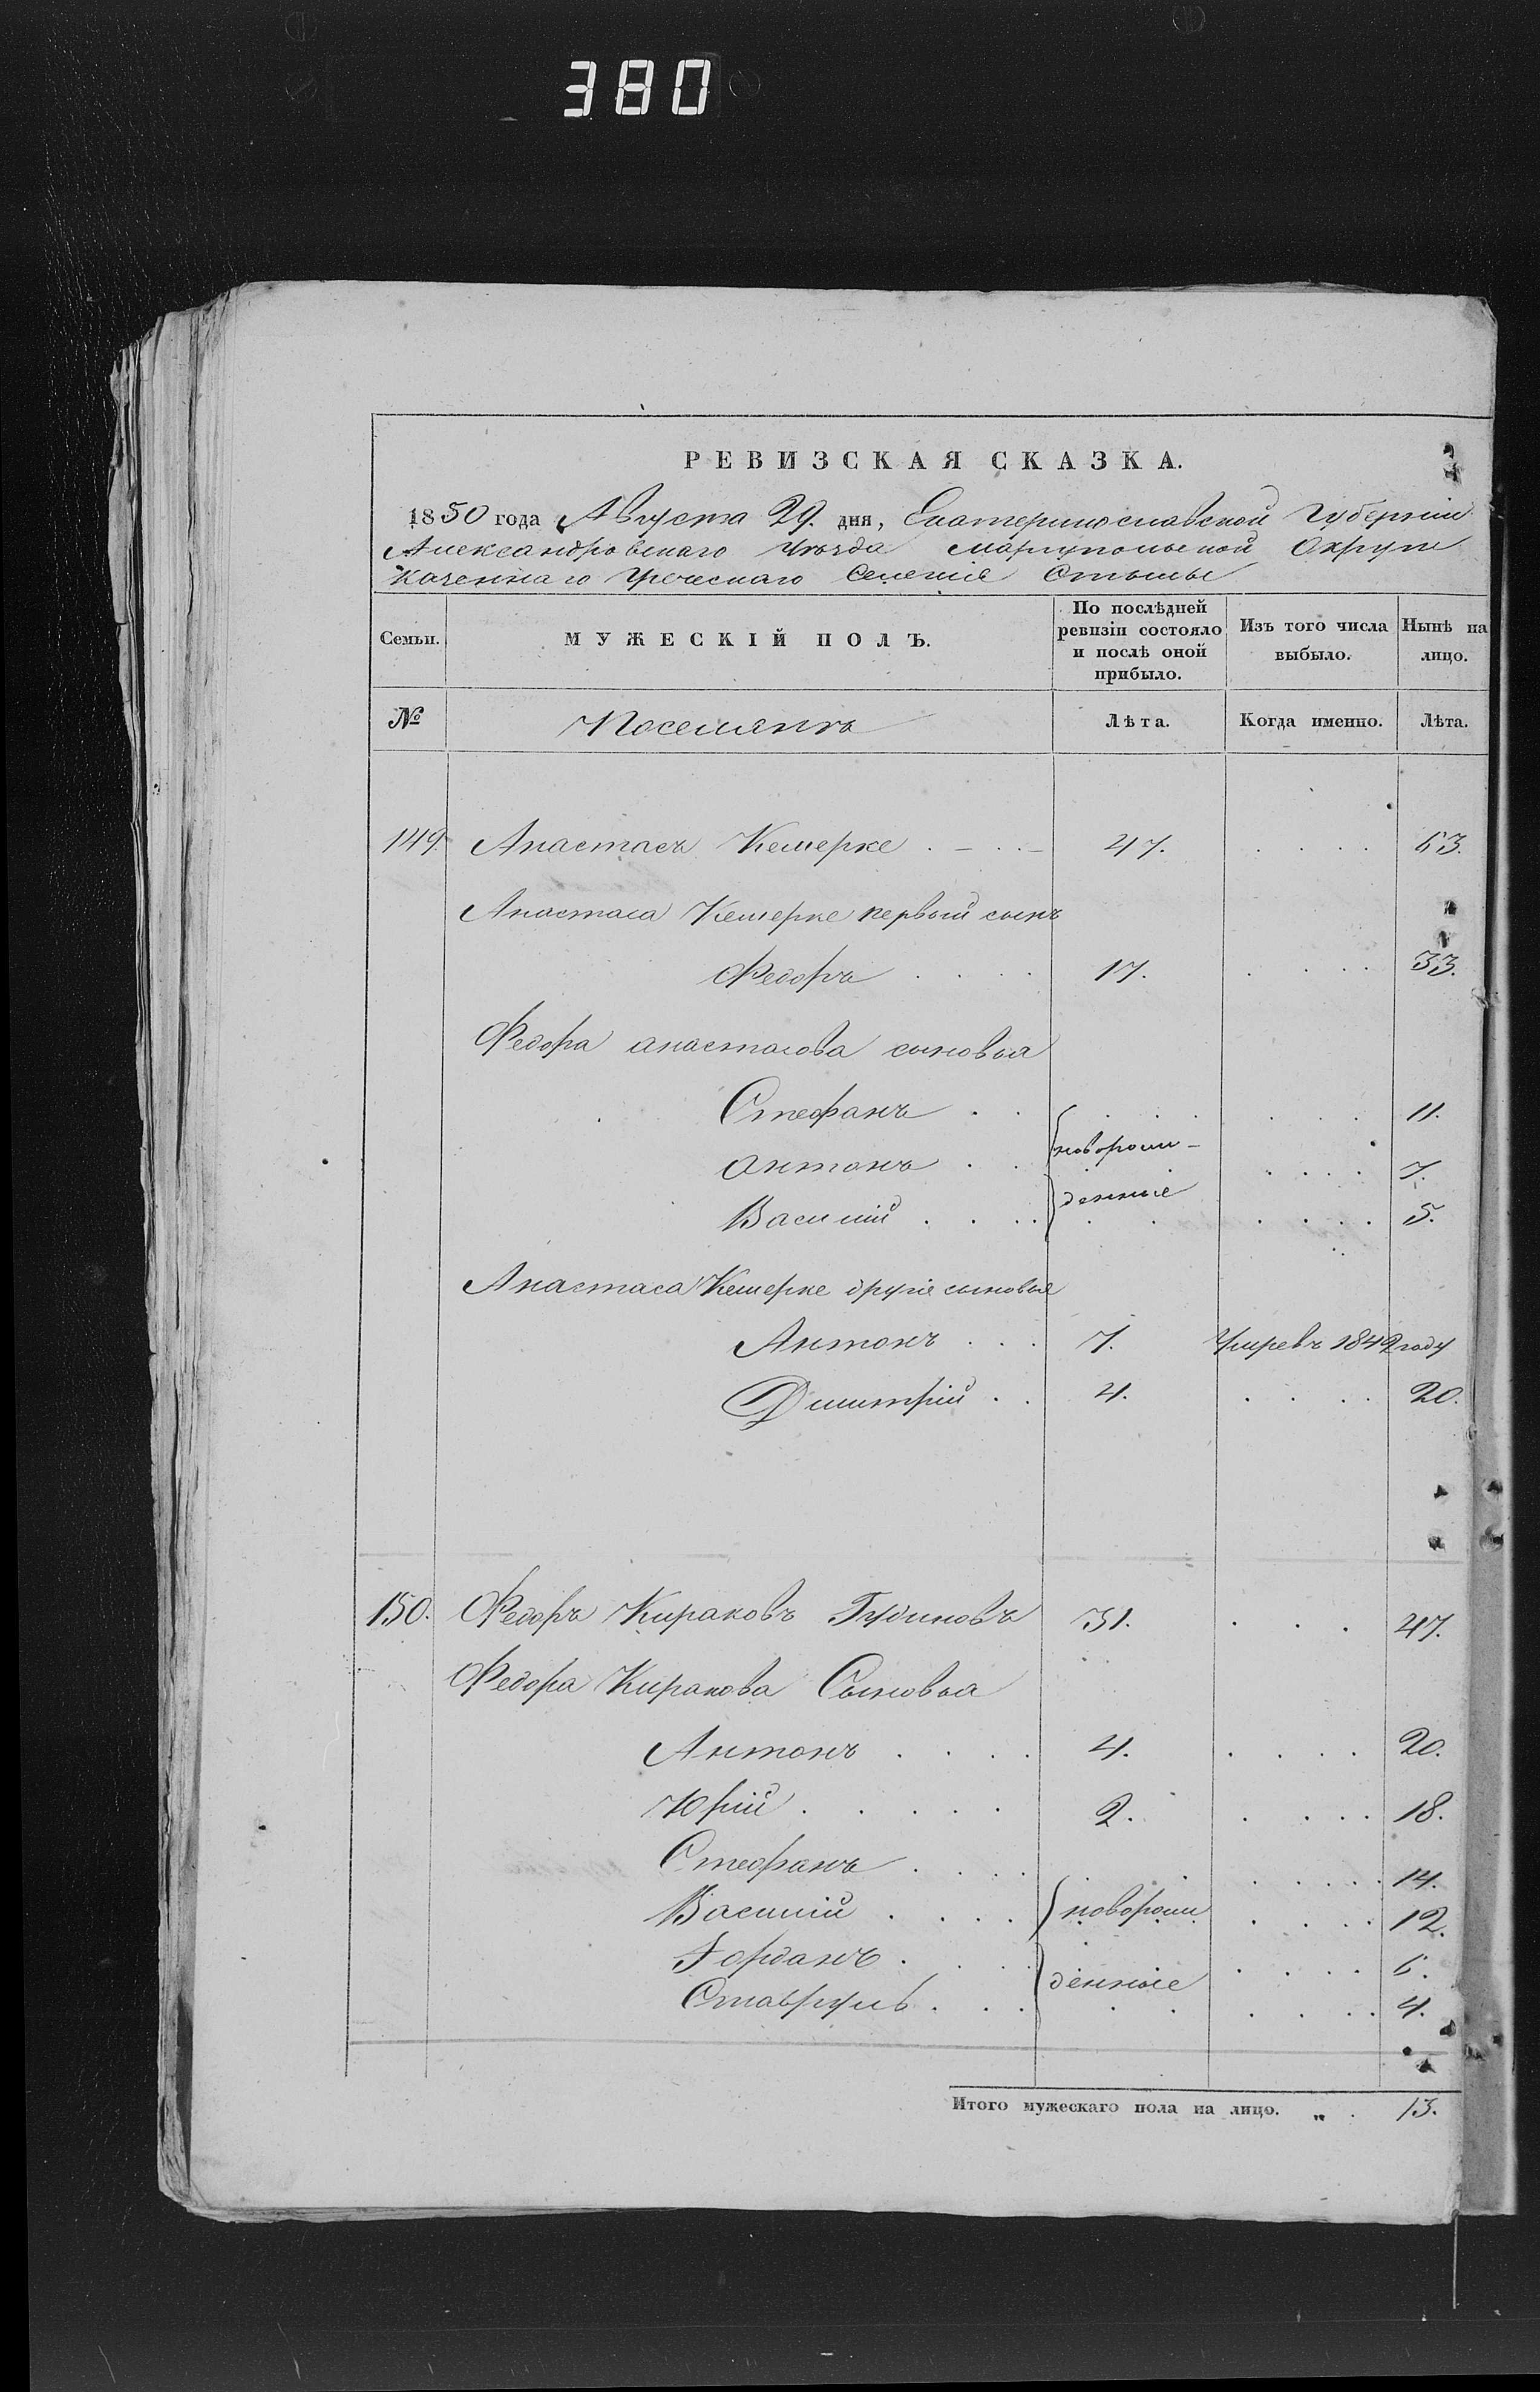 380
РЕВИЗСКАЯ СКАЗКА.
1850 года Августа 29. дня, Екатеринославской Губернии
Александровскаго Уезда Мариупольской Округи
Казеннаго Греческаго Селения Стылы
Семьи. МУЖЕСКІЙ ПОЛЪ. По послѣдней ревизіи состояло и послѣ оной прибыло. Изъ того числа выбыло. Нынѣ на лицо.
№ Поселянъ Лѣта. Когда именно. Лѣта.
149. Анастасъ Кешерже 47. 63.
Анастаса Кешерже первый сынъ
Федоръ 17. 33.
Федора анастасова сыновья
Стефанъ 11.
Антонъ новорож- 7.
Василий денные 5.
Анастаса Кешерже другие сыновья
Антонъ 7. Умре въ 1842 году
Дмитрий 4. 20.
150. Федоръ Кираковъ Гудиновъ 31. 47.
Федора Киракова Сыновья
Антонъ 4. 20.
Юрий 2. 18.
Стефанъ 14.
Василий новорож 12.
Іорданъ 6.
денные
Ставруль 4.
Итого мужескаго пола на лицо. „ 13.